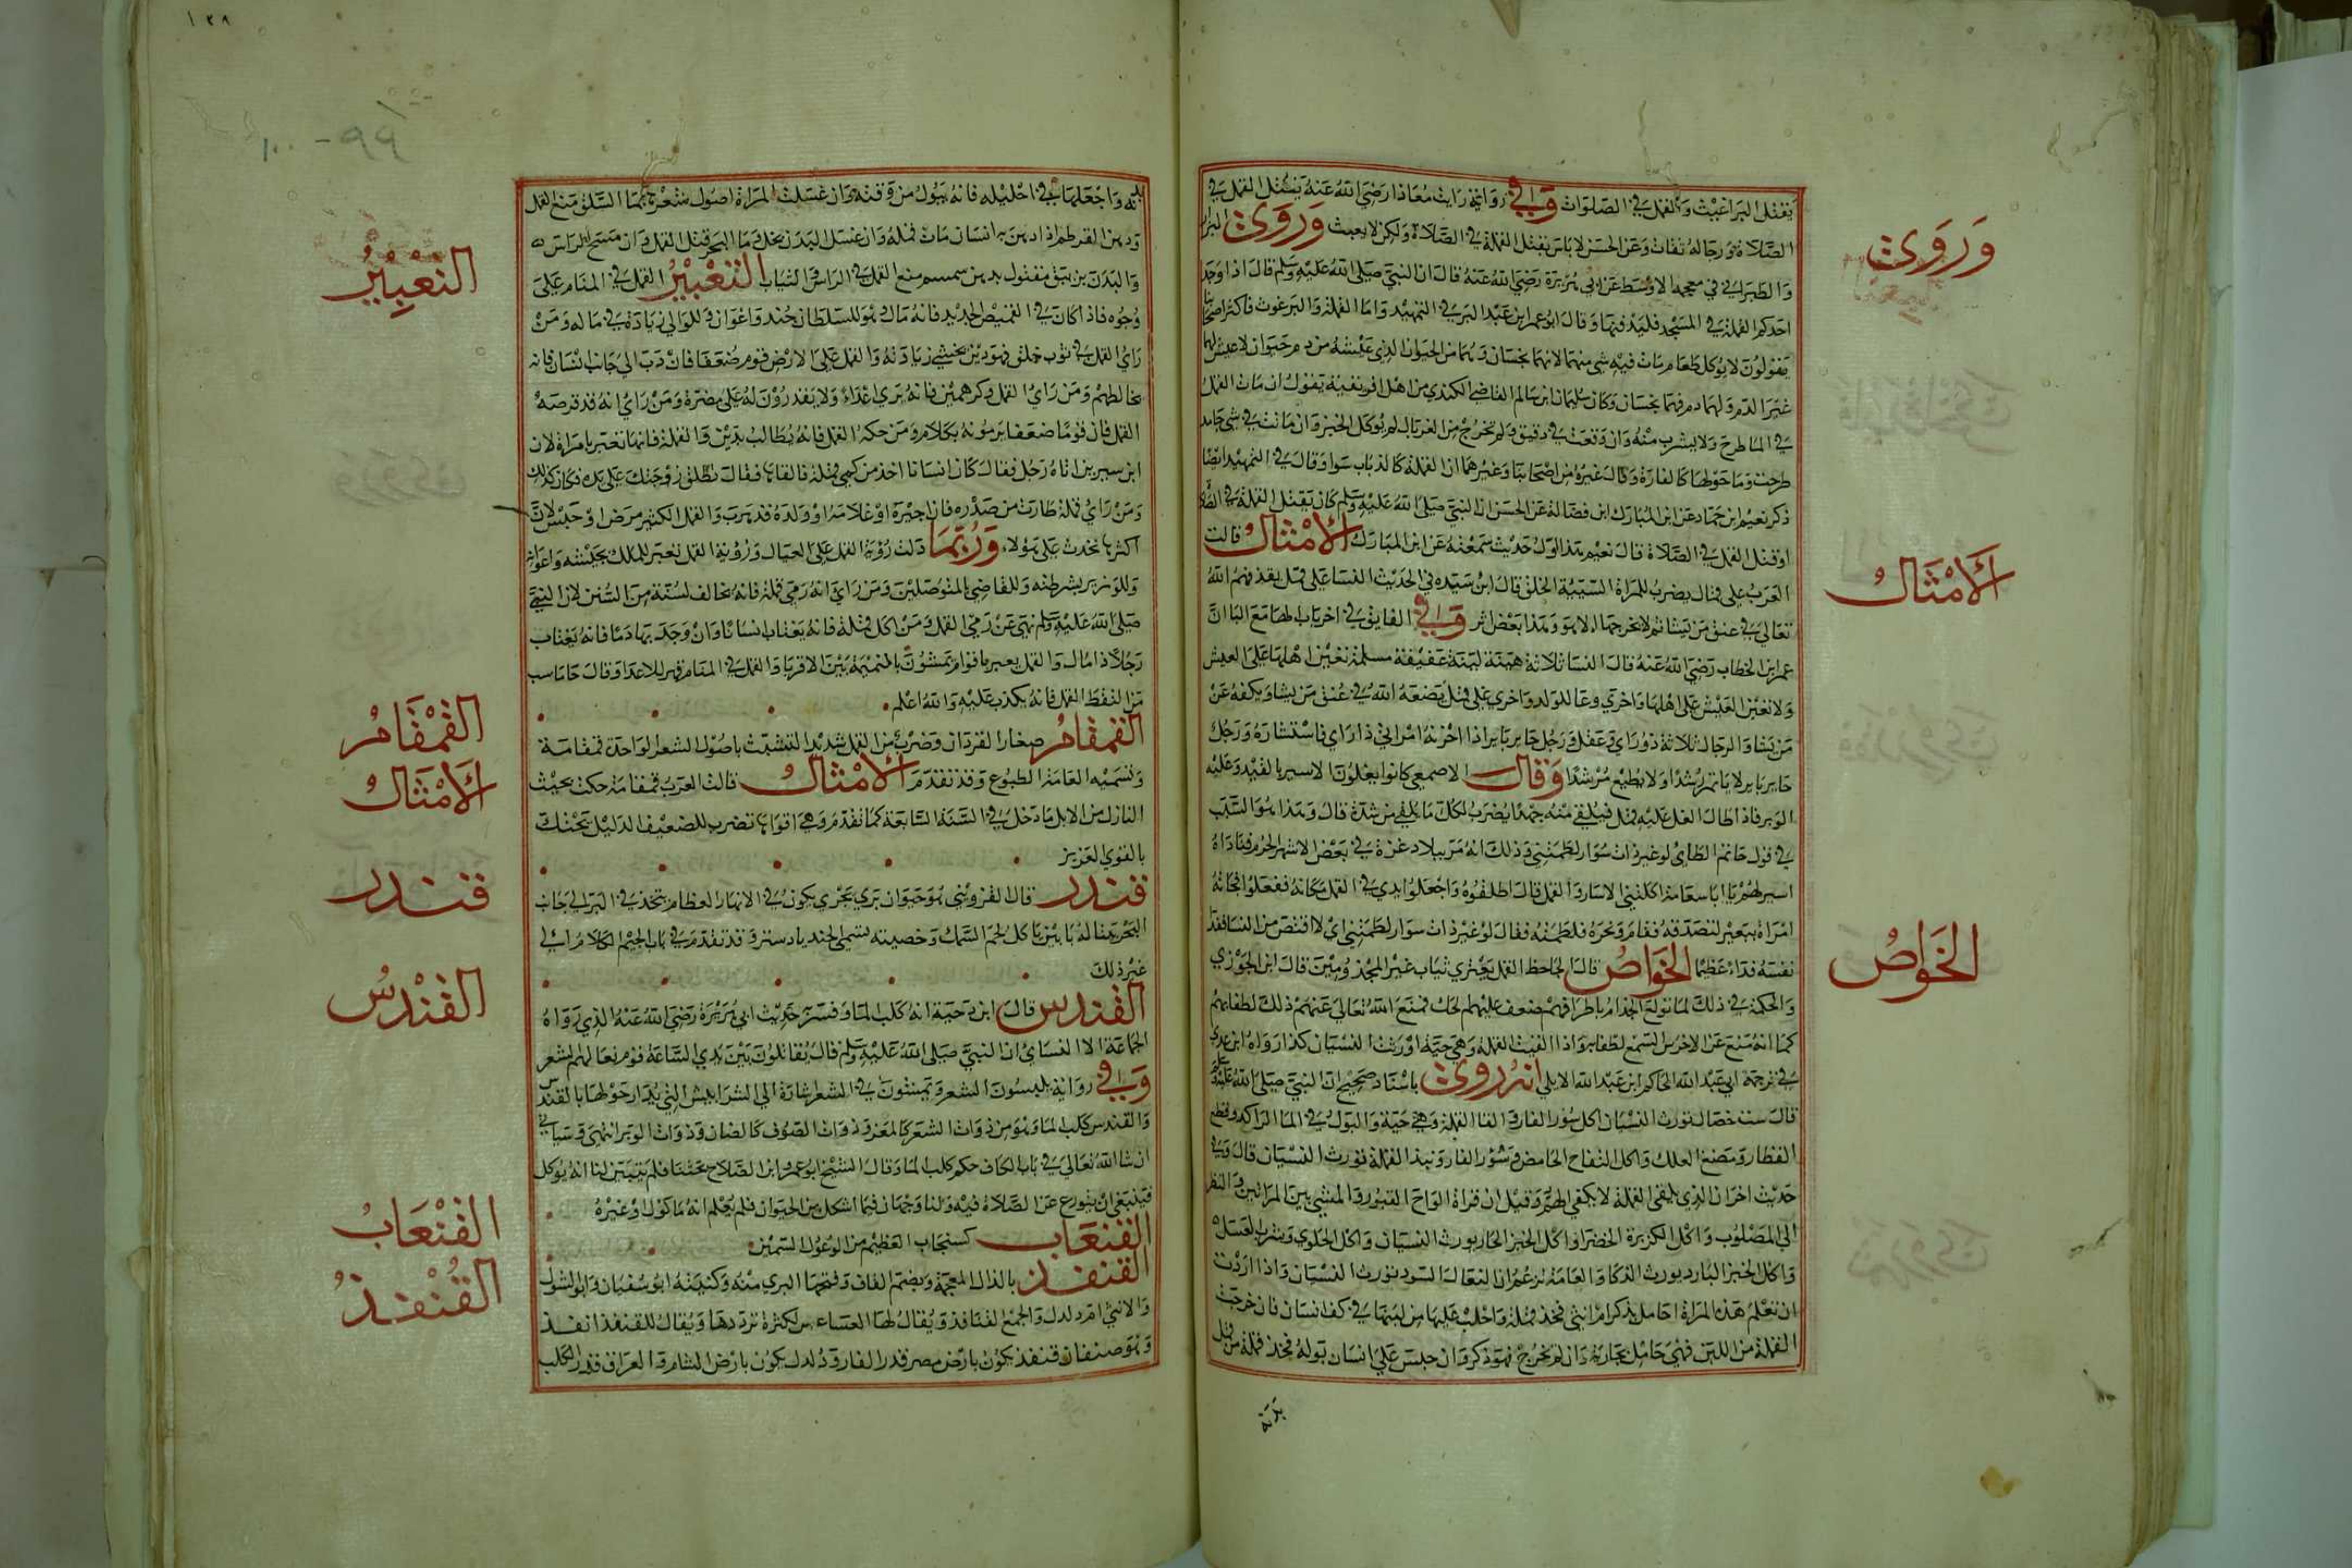 يقتل البراغيث والقمل في الصلوات وفي رواية رايت معاذا رضي الله عنه يقتل القمل في
الصلاة ورجاله ثقات وعن الحسن لا باس بقتل القملة في الصلاة ولكن لا يعبث وروى البزار
والطبراني في معجمه الاوسط عن ابي هريرة رضي الله عنه قال ان النبي صلى الله عليه وسلم قال اذا وجد
احدكم القملة في المسجد فليدفنها وقال ابو عمر ابن عبد البر في التمهيد واما القملة والبرغوث فاكثر اصحابنا
يقولون لا يوكل طعام مات فيه شي منهما لانهما نجسان وهما من الحيوان الذي عيشه من دم حيوان لا عيش لهما
غير الدم ولهما دم فهما نجسان وكان سليمان ابن سالم القاضي الكندي من اهل افريقية يقول ان مات القمل
في الما طرح ولا يشرب منه وان وقعت في دقيق ولم تخرج من الغربال لم يوكل الخبز وان ماتت في شي جامد
طرحت وما حولها كالفارة وقال غيره من اصحابنا وغيرهما ان القملة كالذباب سوا وقال في التمهيد ايضا
ذكر نعيم ابن حماد عن ابن المبارك ابن فضالة عن الحسن ان النبي صلى الله عليه وسلم كان يقتل القملة في الصلاة
او قتل القمل في الصلاة قال نعيم هذا اول حديث سمعته عن ابن المبارك الامثال قالت
العرب غل قمل يضرب للمراة السيئة الخلق قال ابن سيده في الحديث النسا غل قمل يقذفهم الله
تعالى في عنق من يشا ثم لا يخرجها الا هو وهذا بعض اثر وفي الفايق في اخر باب الها مع البا ان
عمر ابن الخطاب رضي الله عنه قال النسا ثلاثة هينة لينة عفيفة مسلمة تعين اهلها على العيش
ولا تعين العيش على اهلها واخرى وعا للولد واخرى غل قمل يضعه الله في عنق من يشا ويكفه عن
من يشا والرجال ثلاثة ذو راي وعقل ورجل حاير باير اذا احزنه امر اتي ذا راي فاستشاره ورجل
حاير باير لا ياتمر رشدا ولا يطيع مرشدا وقال الاصمعي كانوا يغلون الاسير بالقيد وعليه
الوبر فاذا طال الغل عليه قمل فيلقى منه جهدا يضرب لكل ما يلقى من شدة قال وهذا هو السبب
في قول حاتم الطاي لو غير ذات سوار لطمتني وذلك انه مر ببلاد عنزة في بعض الاشهر الحرم فناداه
اسير لهم يا ابا سعامة اكلني الاسار والقمل قال اطلقوه واجعلوا يدي في الغل مكانه ففعلوا فجاته
امراة ببعير لتفصدفه فقام ونحره فلطمته فقال لو غير ذات سوار لطمتني اي لا اقتص من النسا ففدا
نفسه فداء عظيما الخواص قال الجاحظ القمل يعتري ثياب غير المجذومين قال ابن الجوزي
والحكمة في ذلك لما تولع الجذام باطرافهم ضعف عليهم الحك فمنع الله تعالى عنهم ذلك لطفا بهم
كما انه منع عن الاخرس السمع لطفا به واذا القيت القملة وهي حية اورثت النسيان كذا رواه ابن عدي
في ترجمة ابي عبد الله الحاكم ابن عبد الله الايلي انه روى باسناد صحيح ان النبي صلى الله عليه وسلم
قال ست خصال تورث النسيان اكل سور الفار والقا القملة وهي حية والبول في الما الراكد وقطع
القطار ومضغ العلك واكل التفاح الحامض وسور الفار ونبذ القملة تورث النسيان قال وفي
حديث اخر ان الذي يلقى القملة لا يكفى الهم وقيل ان قراة الواح القبور والمشي بين المراتين والنظر
الى المصلوب واكل الكزبرة الخضرا واكل الخبز الحار يورث النسيان واكل الحلوى وشرب العسل
واكل الخبز البارد يورث الذكا والعامة تزعم ان النعال السود تورث النسيان واذا اردت
ان تعلم هذه المراة احامل بذكر ام انثى فخذ قملة واحلب عليها من لبنها في كف انسان فان خرجت
القملة من اللبن فهي حامل بجارية وان لم تخرج فهو ذكر وان حبس على انسان بوله فخذ قملة من قمل
بدنه
وروى
الامثال
الخواص
١٣٨
٩٩ - ١٠٠
بدنه واجعلها في احليله فانه يبول من وقته وان غسلت المراة اصول شعرها بما السلق منع القمل
ودهن القرطم اذا ادهن به انسان مات قمله وان غسل البدن بخل وما البحر قتل القمل وان مسح الراس
والبدن بزيبق مقتول بدهن سمسم منع القمل في الراس والثياب التعبير القمل في المنام على
وجوه فاذا كان في القميص الجديد فانه مال وهو للسلطان جند واعوان وللوالي زيادة في ماله ومن
راي القمل في ثوب خلق فهو دين يخشى زيادته والقمل على الارض قوم ضعفا فان دب الى جانب انسان فانه
يخالطهم ومن راي القمل وكرههن فانه يرى اعداء ولا يقدرون له على مضرة ومن راي انه قد قرصه
القمل فان قوما ضعفا يرمونه بكلام ومن حكه القمل فانه يطالب بدين والقملة فانها تعبر بامراة لان
ابن سيرين اتاه رجل فقال كان انسانا اخذ من كمي قملة فالقاها فقال تطلق زوجتك على يده فكان كذلك
ومن راي قملة طارت من صدره فان اجيره او غلامه او ولده قد هرب والقمل الكثير مرض او حبس لان
اكثرها تحدث على هولاء وربما دلت روية القمل على العيال وروية القمل تعبر للملك بجيشه واعوانه
وللوزير بشرطته وللقاضي بالمتوصلين ومن راي انه رمى قملة فانه يخالف لسنة من السنن لان النبي
صلى الله عليه وسلم نهى عن رمي القمل ومن اكل قملة فانه يغتاب انسانا وان وجد بها دما فانه يغتاب
رجلا ذا مال والقمل يعبر باقوام يمشون بالنميمة بين الاقربا والقمل في المنام قهر للاعدا وقال جاماسب
من التقط القمل فانه يكذب عليه والله اعلم
القمقام صغار القردان وضرب من القمل شديد التشبث باصول الشعر الواحدة قمقامة
وتسميه العامة الطبوع وقد تقدم الامثال قالت العرب قمقامة حكت بجنب
البازل من الابل ما دخل في السنة التاسعة كما تقدم وهي اقواها تضرب للضعيف الذليل يحتك
بالقوي العزيز
قندر قال القزويني هو حيوان بري بحري يكون في الانهار العظام يتخذ في البر الى جانب
البحر بيتا له بابين ياكل لحم السمك وخصيته تسمى الجندبادستر وقد تقدم في باب الجيم الكلام الى
غير ذلك
القندس قال ابن دحية انه كلب الما وفسر به حديث ابي هريرة رضي الله عنه الذي رواه
الجماعة الا النساي ان النبي صلى الله عليه وسلم قال يقاتلون بين يدي الساعة قوم نعالهم الشعر
وفي رواية يلبسون الشعر ويمشون في الشعر اشارة الى الشرابيش التي يدار حولها بالقندس
والقندس كلب الما وهو من ذوات الشعر كالمعز وذوات الصوف كالضان وذوات الوبر انتهى وسياتي
ان شا الله تعالى في باب الكاف حكم كلب الما وقال الشيخ ابو عمرو ابن الصلاح بحثنا فلم يتبين لنا انه يوكل
فينبغي ان يتورع عن الصلاة فيه ولنا وجهان فيما اشكل من الحيوان فلم يعلم انه ماكول او غيره
القنعاب كسنجاب العظيم من الوعول السمين
القنفذ بالذال المعجمة وبضم القاف وفتحها البري منه وكنيته ابو سفيان وابو الشوك
والانثى ام دلدل والجمع القنافذ ويقال لها العساعس لكثرة ترددها ويقال للقنفذ انقذ
وهو صنفان قنفذ يكون بارض مصر قدر الفار ودلدل يكون بارض الشام والعراق قدر الكلب
التعبير
القمقام
الامثال
قندر
القندس
القنعاب
القنفذ